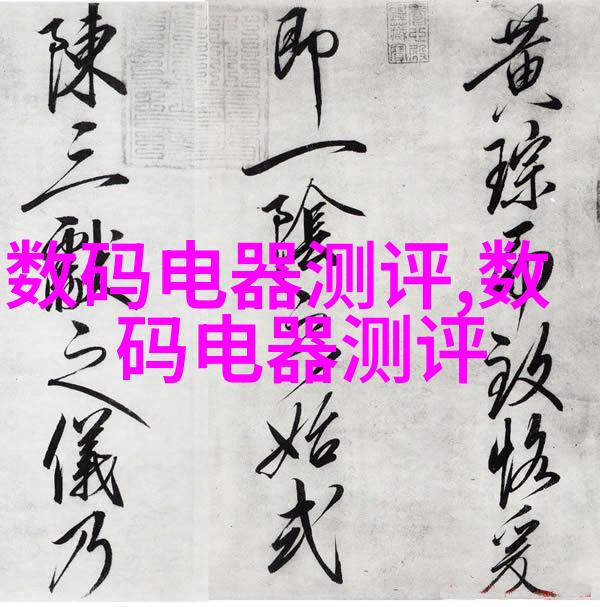 数码电器测评,数
码电器测评
黄琮而致恪爰
即一陰始式
陳三獻之儀乃